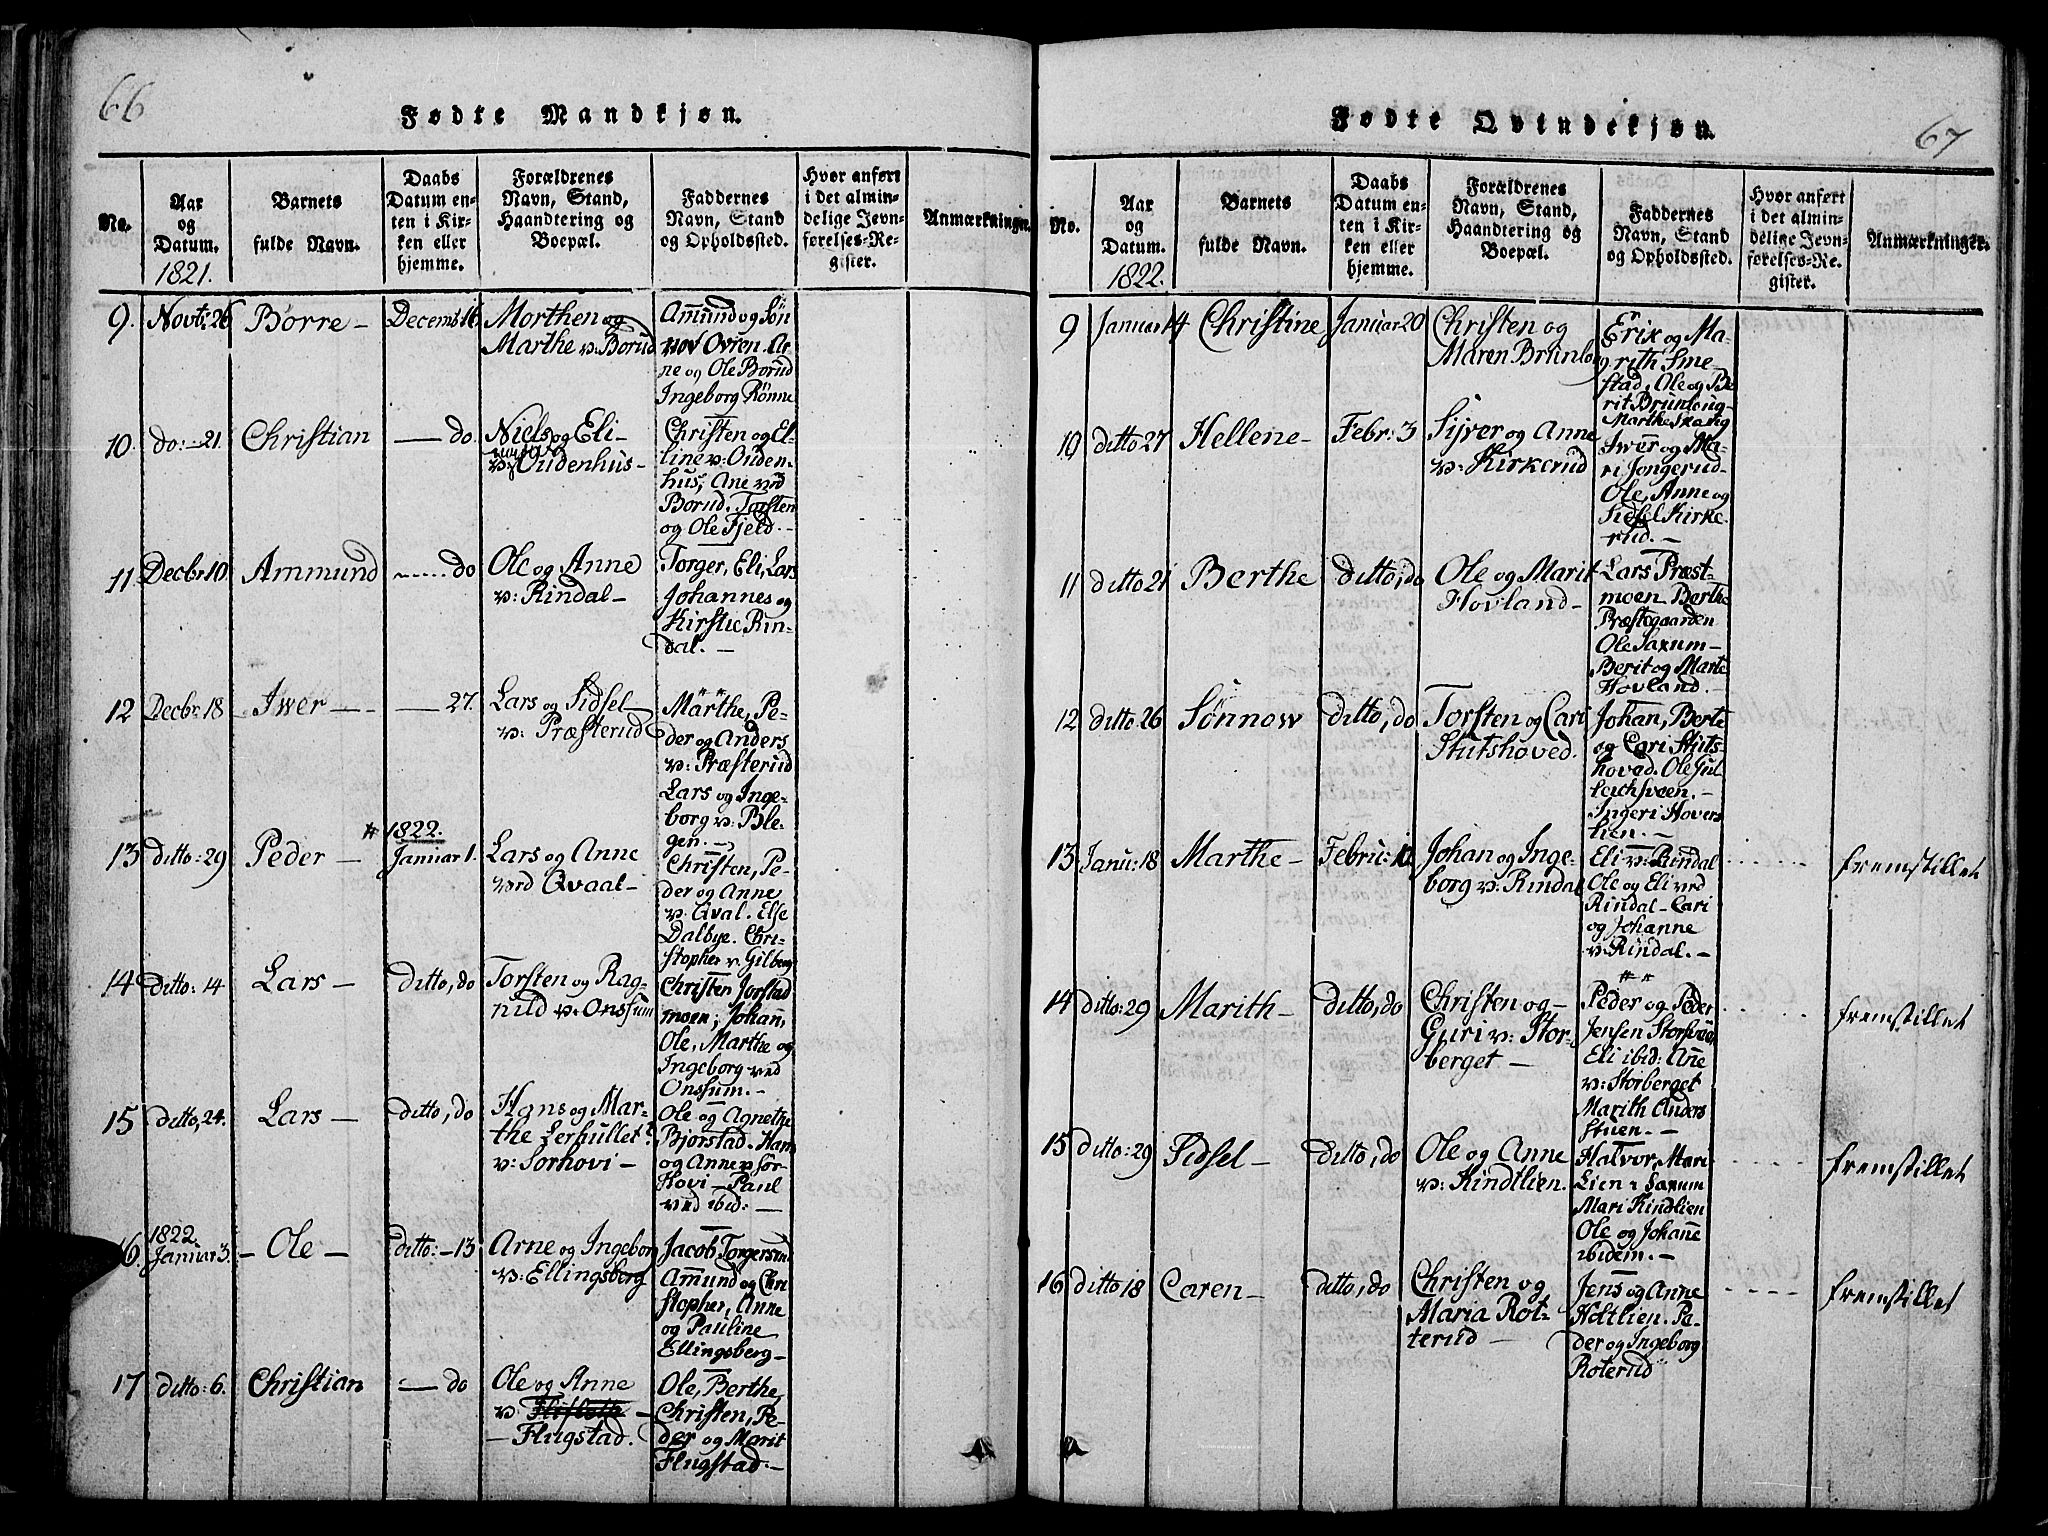 66
Fødte Mandkjøn.
No.
Aar
og
Datum.
1821.
Barnets
fulde Navn.
Daabs
Datum en-
ten i Kir-
ken eller
hjemme.
Forældrenes
Navn, Stand,
Haandtering og
Boepæl.
Faddernes
Navn, Stand
og Opholdssted.
Hvor anført
i det almin-
delige Jevn-
førelses-Re-
gister.
Anmærkninger.
9. Novbr: 26 Börre - Decemb: 16
Morthen og
Marthe v: Borud
Am̅und og Sön
nov Ovren. Ar
ne og Ole Borud
Ingeborg Rönne
10. do: 21. Christian — do
Niels og Eli-
v: Oudenhus-
Christen og El-
line v: Ouden-
hus, Ane ved
Borud. Torsten
og Ole Fjeld. -
11. Decbr 10. Ammund - do
Ole og Anne
v: Rindal -
Torger, Eli, Lars
Johannes og
Kirstie Rin-
dal. -
12 Decbr: 18 - Iwer - — 27.
Lars og Sidsel
v: Præsterud
Märthe, Pe-
der og Anders
v: Præsterud
Lars og Inge-
borg v: Ble-
gen. -
13 ditto: 29 Peder -
# 1822.
Januar 1.
Lars og Anne
ved Qvaal -
Christen, Pe-
der og Anne
v: Qval. Else
Dalbye. Chri-
stopher v. Gilberg
14 ditto: 14 Lars - ditto, do
Torsten og Rag-
nild v: Onssum
Christen Jorstad
moen; Johan̅,
Ole, Marthe og
Ingeborg ved
Onssum. -
15 ditto, 24. Lars - ditto, do
Hans og Mar-
the Lerhullet
v: Sorhovi -
Ole og Agnethe
Bjorstad. Hans
og Anne v: Sor-
hovi - Paul
ved ibid: -
16.
1822
Januar 3. - Ole - ditto: - 13
Arne og Ingeborg
v: Ellingsberg
Jacob Torgersrud
Am̅und og Chri
stopher, Anne
og Pauline
Ellingsberg -
17 ditto: 6. Christian — do
Ole og Anne
v:
- Flugstad.
Ole, Berthe,
Christen, Pe-
der og Marit
Flugstad. -
67
Fødte Qvindekjøn.
No.
Aar
og
Datum.
1822.
Barnets
fulde Navn.
Daabs
Datum en-
ten i Kir-
ken eller
hjemme.
Forældrenes
Navn, Stand,
Haandtering og
Boepæl.
Faddernes
Navn, Stand
og Opholdssted.
Hvor anført
i det almin-
delige Jevn-
førelses-Re-
gister.
Anmærkninger.
9 Januar 14 Christine Januar 20
Christen og
Maren Brunlog
Erix og Ma-
grith Sme-
stad, Ole og Be
rit Brunloug-
Marthe Skaug
10 ditto 27 Hellene - Febr: 3
Sijver og Anne
v: Kirkerud
Iwer og Ma-
ri Jongerud-
Ole, Anne og
Sidsel Kirke-
rud. -
11 ditto 21 Berthe ditto, do
Ole og Marit
Hovland -
Lars Præst-
moen. Berthe
Præstegaarden
Ole Saxum -
Berit og Marte
Hovland. -
12 ditto 26 Sönnow ditto, do
Torsten og Cari
Stutshoved.
Johan, Berte
og Cari Stuts-
hoved. Ole Jul
Ingeri Hovers
lien. -
13 Janu: 18 Marthe - Febru: 10
Johan og Inge-
borg v: Rindal
Eli v: Rindal
Ole og Eli ved
Rindal - Cari
og Johanne
v: Rindal. -
fremstillet
14 ditto: 29 Marith - ditto, do
Christen og -
Guri v: Stor-
berget -
Peder og Peder
Jensen Storsveen
Eli ibid: An̅e
v: Storberget
Marith Anders
stuen. -
fremstillet
15 ditto: 29 Sidsel - ditto, do
Ole og Anne
v: Kindtlien.
Halvor, Mari
Lien v Saxum
Mari Kindlien
Ole og Johan̅e
ibidem. -
fremstillet
16 ditto 18 Caren - ditto, do
Christen og
Maria Rot-
terud -
Jens og Anne
Holtlien. Pe-
der og Ingeborg
Roterud
fremstillet